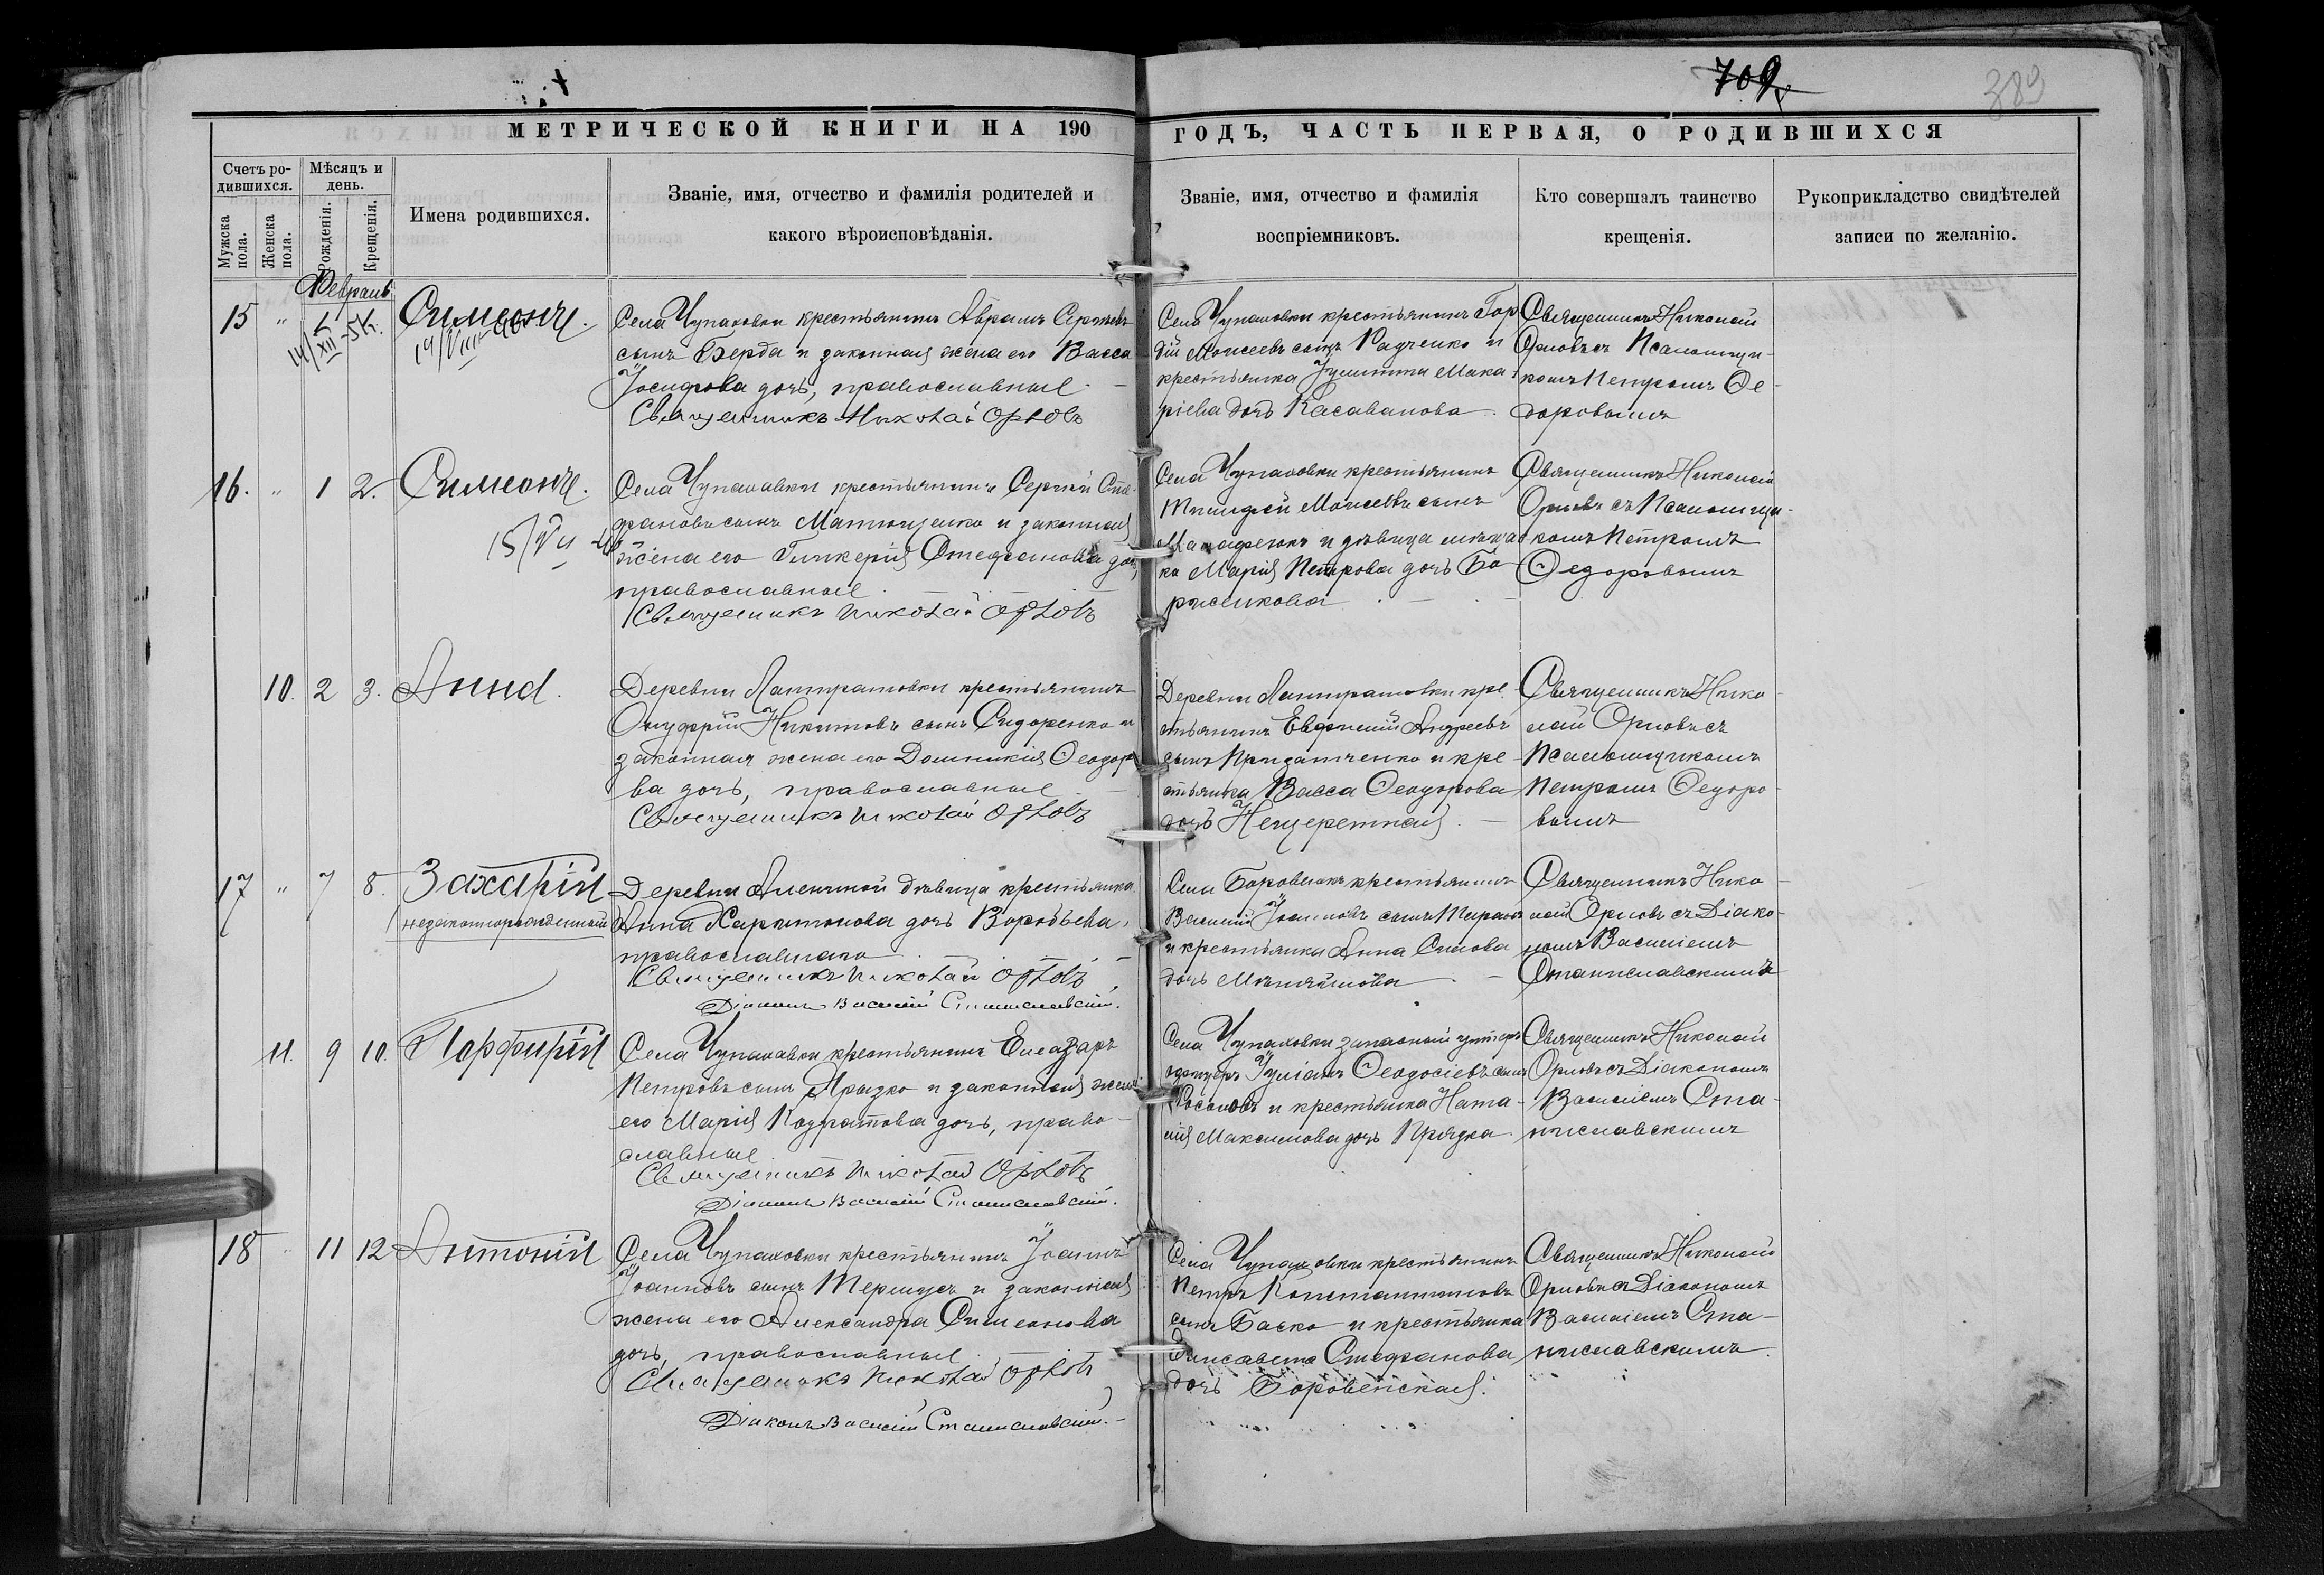 709
389
МЕТРИЧЕСКОЙ КНИГИ НА 190
ГОДЪ, ЧАСТЬ ПЕРВАЯ, О РОДИВШИХСЯ
Счетъ ро-
дившихся.
Мужска
пола.
Женска
пола.
Мѣсяцъ и
день.
Рожденія.
Крещенія.
Имена родившихся.
Званіе, имя, отчество и фамилія родителей и
какого вѣроисповѣданія.
Званіе, имя, отчество и фамилія
воспріемниковъ.
Кто совершалъ таинство
крещенія.
Рукоприкладство свидѣтелей
записи по желанію.
Февраль
15 "
Симеонъ.
Села Чупаховки крестьянинъ Аврамъ Сергѣевъ
сынъ Берда и законная жена его Васса
Іосифова дочь, православные
Священникъ Николай Орловъ
Села Чупаховки крестьянинъ Гор
дій Моисеевъ сынъ Радченко и
крестьянка Іулитта Мака
ріева дочь Касаванова
Священникъ Николай
Орловъ съ Псаломщи-
комъ Петромъ Ѳе-
доровымъ
16. " 1 2. Симеонъ.
Села Чупаховки крестьянинъ Сергій Сте-
фановъ сынъ Матющенко и законная
жена его Гликерія Стефанова дочь,
православные
Священникъ Николай Орловъ
Села Чупаховки крестьянинъ
Тимофей Моисеевъ сынъ
и дѣвица мѣщан
ка Марія Петрова дочь Бо
рисенкова
Священникъ Николай
Орловъ съ Псаломщи-
комъ Петромъ
Ѳедоровымъ
10. 2 3. Анна.
Деревни Лантратовки крестьянинъ
Онуфрій Никитовъ сынъ Сидоренко и
законная жена его Домникія Ѳеодоро
ва дочь, православные
Священникъ Николай Орловъ
Деревни Лантратовки кре-
стьянинъ Евфимій Андреевъ
сынъ Придатченко и кре-
стьянка Васса Ѳеодорова
дочь Нещеретная
Священникъ Нико-
лай Орловъ съ
Псаломщикомъ
Петромъ Ѳедоро-
вымъ
17 " 7 8. Захарій
незаконнорожденный
Деревни Аленчной дѣвица крестьянка
Анна Харитонова дочь Воробьева,
православнаго
Священникъ Николай Орловъ
Діаконъ Василій Станиславскій.
Села Боровенька крестьянинъ
Василій Іоанновъ сынъ
и крестьянка Анна
дочь
Священникъ Нико-
лай Орловъ съ Діако-
номъ Василіемъ
Станиславскимъ
11. 9 10. Порфирій
Села Чупаховки крестьянинъ Елеазаръ
Петровъ сынъ Прядко и законная жена
его Марія Кодратова дочь, право-
славные
Священникъ Николай Орловъ
Діаконъ Василій Станиславскій.
Села Чупаховки запасный унтеръ
офицеръ Іуліанъ Ѳеодосіевъ сынъ
и крестьянка Ната-
лія Максимова дочь Прядка
Священникъ Николай
Орловъ съ Діакономъ
Василіемъ Ста-
ниславскимъ
18 " 11 12 Антоній
Села Чупаховки крестьянинъ Іоаннъ
Іоанновъ сынъ и законная
жена его Александра Симеонова
дочь, православные
Священникъ Николай Орловъ
Діаконъ Василій Станиславскій.
Села Чупаховки крестьянинъ
Петръ Константиновъ
сынъ Баско и крестьянка
Елисавета Стефанова
дочь Боровенская.
Священникъ Николай
Орловъ съ Діакономъ
Василіемъ Ста-
ниславскимъ.